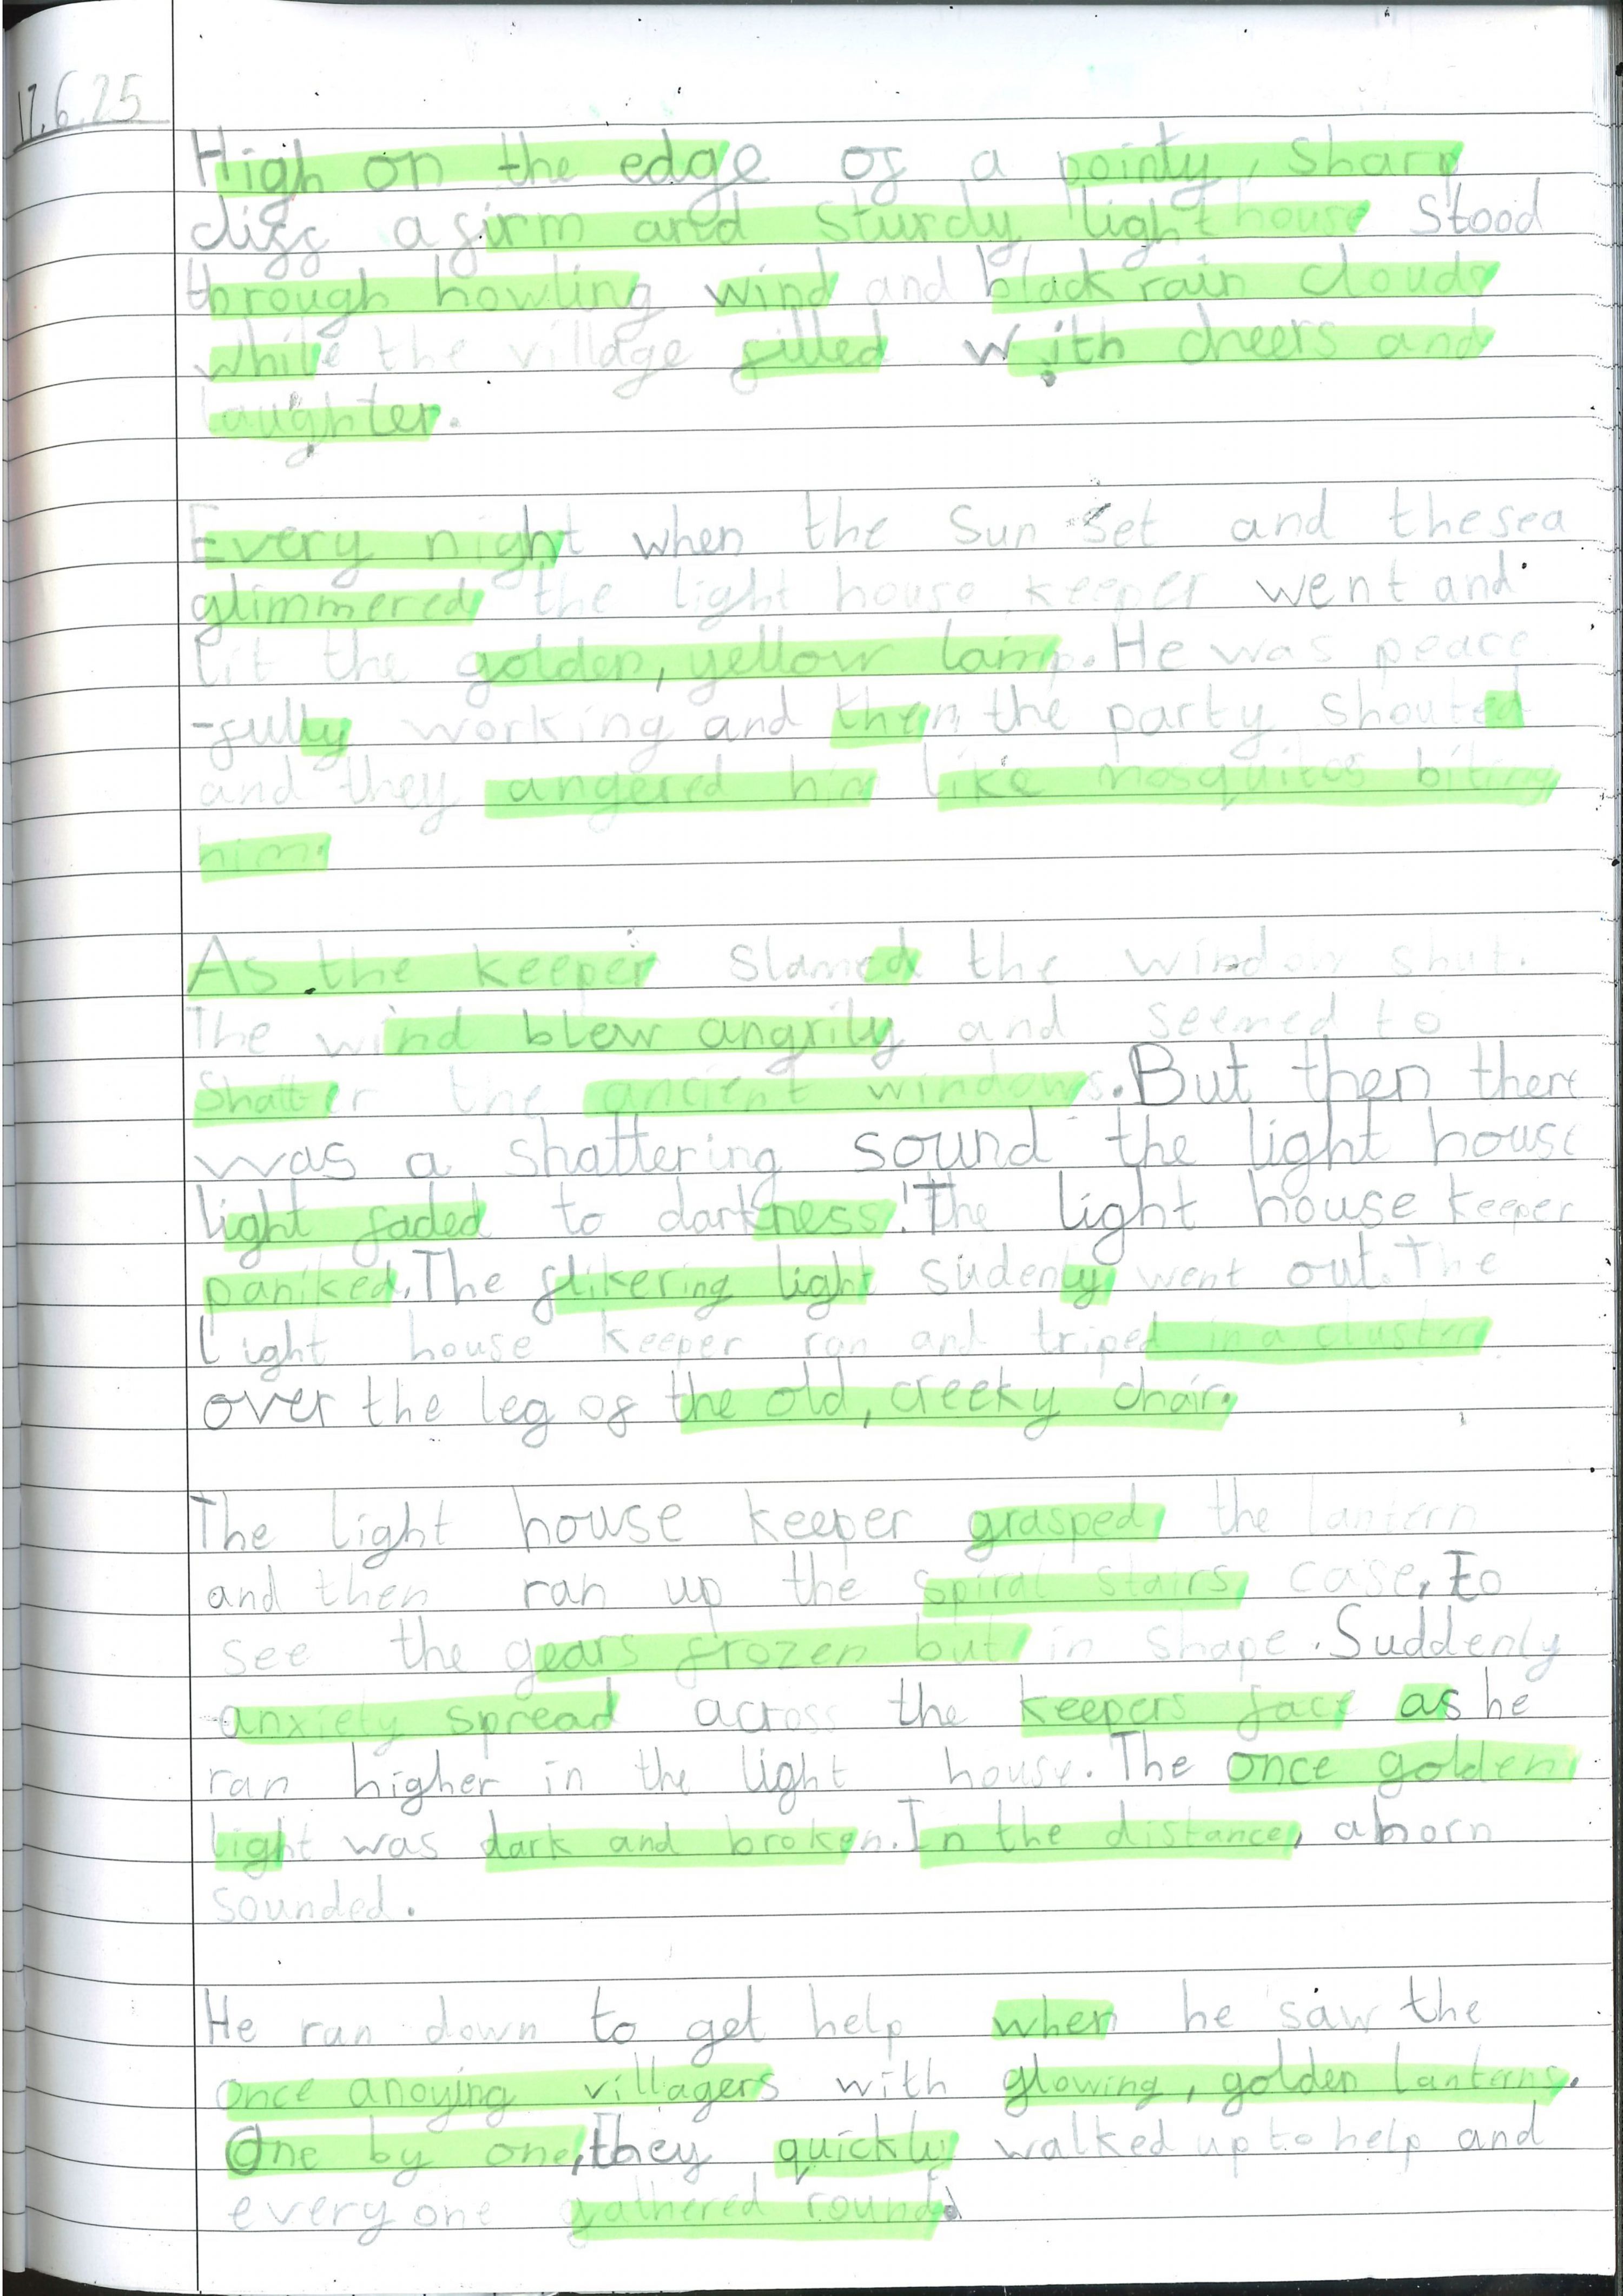 17.6.25
High on the edge of a pointy, sharp
cliff a firm and sturdy light house stood
through howling wind and black rain clouds
while the village filled with cheers and
laughter.
Every night when the sun set and the sea
glimmered the light house keeper went and
lit the golden, yellow lamp. He was peace
-fully working and then the party shouted
and they angered him like mosquitos biting
him.
As the keeper slamed the window shut.
The wind blew angrily and seemed to
shatter the ancient windows. But then there
was a shattering sound the light house
light faded to darkness! The light house keeper
paniked. The flikering light sudenly went out. The
light house keeper ran and triped in a cluster
over the leg of the old, creeky chair.
The light house keeper grasped the lantern
and then ran up the spiral stairs case, to
see the gears frozen but in shape. Suddenly
anxiety spread across the keepers face as he
ran higher in the light house. The once golden
light was dark and broken. In the distance, a horn
sounded.
He ran down to get help when he saw the
once anoying villagers with glowing, golden lanterns.
One by one, they quickly walked up to help and
every one gathered round.